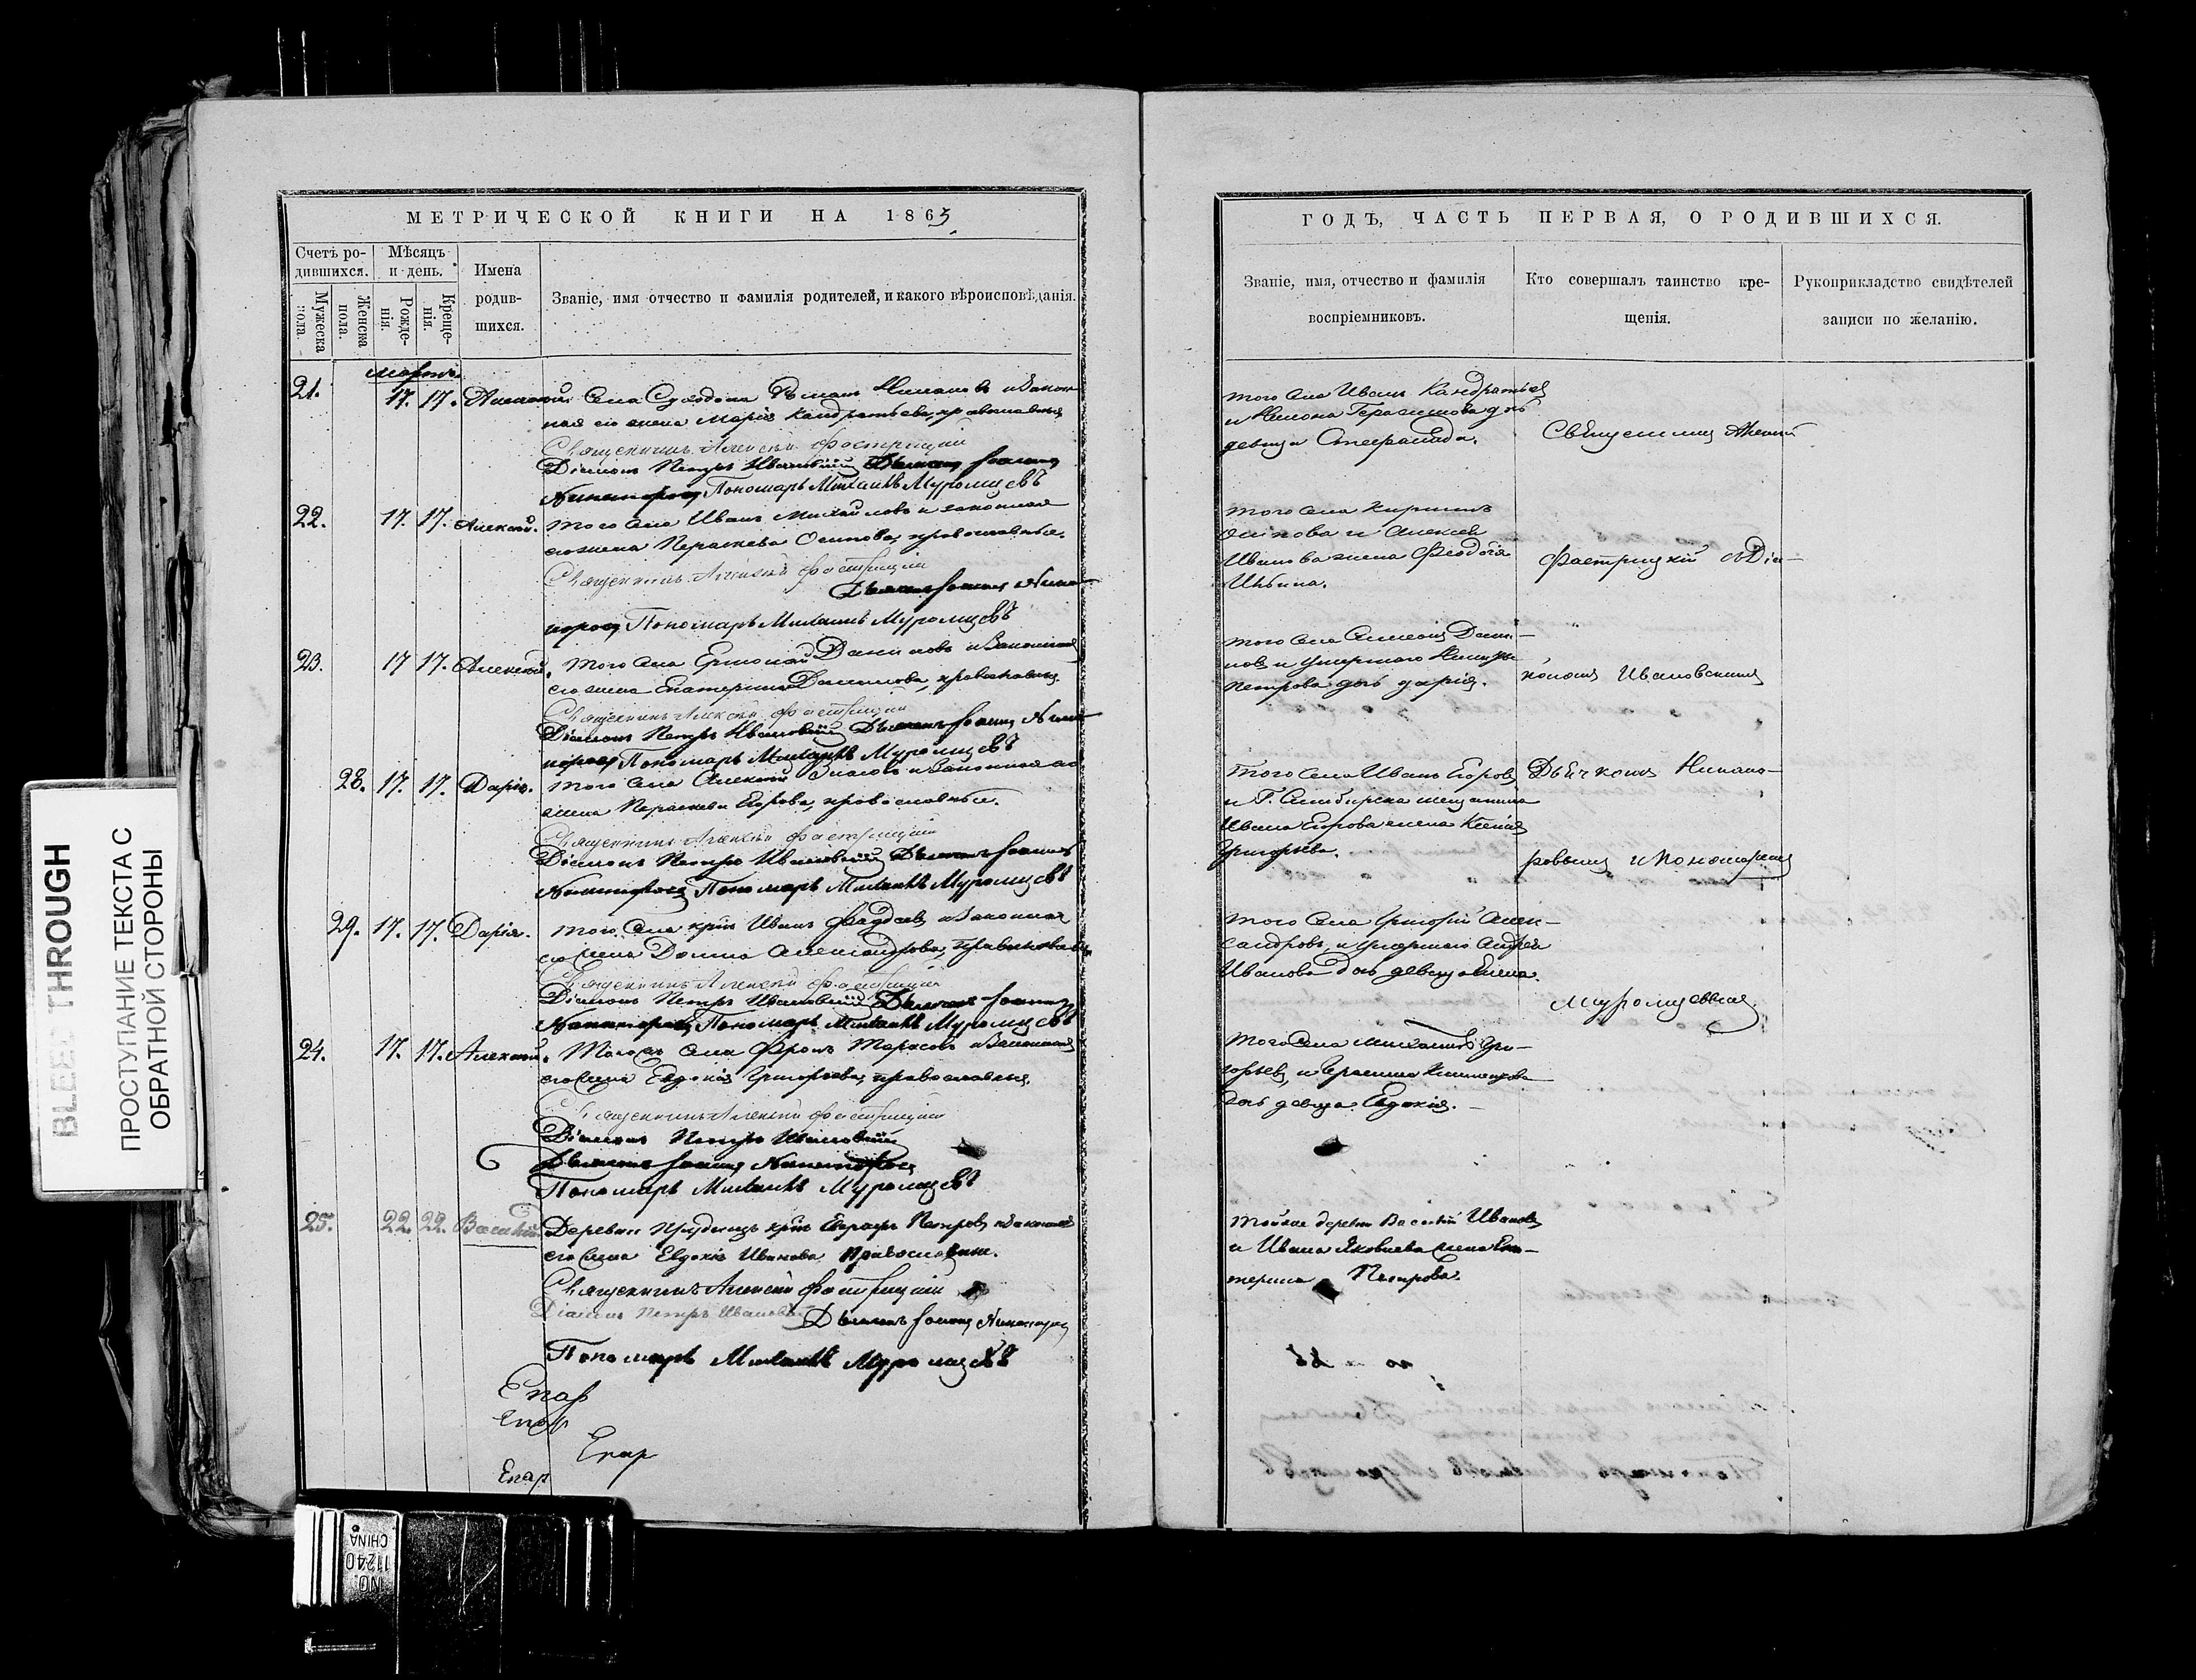 МЕТРИЧЕСКОЙ КНИГИ НА 1865
Счетъ ро-
дившихся.
Мужеска
пола.
Женска
пола.
Мѣсяцъ
и день.
Рожде-
нія.
Креще-
нія.
Имена
родив-
шихся.
Званіе, имя отчество и фамилія родителей, и какого вѣроисповѣданія.
мартъ.
21. 17. 17. Алексѣй. Села Суходола и закон
ная его жена Марія Кандратьева, православныя
Священникъ Алексѣй Фастрицкій
Діаконъ Петръ Ивановскій Дьячекъ Іоаннъ
Никаноровъ Пономарь Михаилъ Муромцевъ
22. 17. 17. Алексѣй. того села Иванъ Михайловъ и законная
его жена Параскева Осипова, православные.
Священникъ Алексѣй Фастрицкій
Дьячекъ Іоаннъ Никано
ровъ Пономарь Михаилъ Муромцевъ
23. 17 17. Алексѣй. того села Ермолай Даниловъ и законная
его жена Екатерина Данилова, православныя.
Священникъ Алексѣй Фастрицкій
Діаконъ Петръ Ивановскій Дьячекъ Іоаннъ Никано
ровъ Пономарь Михаилъ Муромцевъ
28. 17. 17. Дарія. того села Алексѣй и законная его
жена Параскева Егорова, православные.
Священникъ Алексѣй Фастрицкій
Діаконъ Петръ Ивановскій Дьячекъ Іоаннъ
Никаноровъ Пономарь Михаилъ Муромцевъ
29. 17. 17. Дарія. того села крѣс Иванъ Фадѣевъ и законная
его жена Домна Александрова, православныя
Священникъ Алексѣй Фастрицкій
Діаконъ Петръ Ивановскій Дьячекъ Іоаннъ
Никаноровъ Пономарь Михаилъ Муромцевъ
24. 17. 17. Алексѣй. Того села Фролъ Тарасовъ и законная
его жена Евдокія Григорьева, православныя.
Священникъ Алексѣй Фастрицкій
Діаконъ Петръ Ивановскій
Дьячекъ Іоаннъ Никаноровъ
Пономарь Михаилъ Муромцевъ
25. 22. 22. Василій. Деревни крѣс Евграфъ Петровъ и законная
его жена Евдокія Иванова Православные.
Священникъ Алексѣй Фастрицкій
Діаконъ Петръ Ивановск Дьячекъ Іоаннъ Никаноровъ
Пономарь Михаилъ Муромцевъ
Епар
Епар
Епар
Епар
ГОДЪ, ЧАСТЬ ПЕРВАЯ, О РОДИВШИХСЯ.
Званіе, имя, отчество и фамилія
воспріемниковъ.
Кто совершалъ таинство кре-
щенія.
Рукоприкладство свидѣтелей
записи по желанію.
того села Иванъ Кандратьев
и Герасимова дочь
девица
того села
Осипова и Алексея
Иванова жена Феодосія
Ильина.
того села Симеонъ Дани-
ловъ и умершаго
Петрова дочь Дарія.
того села Иванъ Егоровъ
и Г. Симбирска мещанина
Ивана Егорова жена Ксенія
Григорьева.
того села Григорій Алек-
сандровъ, и умершаго Андрея
Иванова дочь девица Елена.
того села Михаилъ Гри-
горьевъ, и
дочь девица Евдокія.
тойже деревни Василій Ивановъ
и Ивана Яковлева жена Ека-
терина Петрова.
Священникъ Алексѣй
Фастрицкій съ Діа-
кономъ Ивановскимъ
Дьячкомъ Никано-
ровымъ и Пономаремъ
Муромцевымъ
BLEED THROUGH
ПРОСТУПАНИЕ ТЕКСТА С
ОБРАТНОЙ СТОРОНЫ
NO.
11240
CHINA